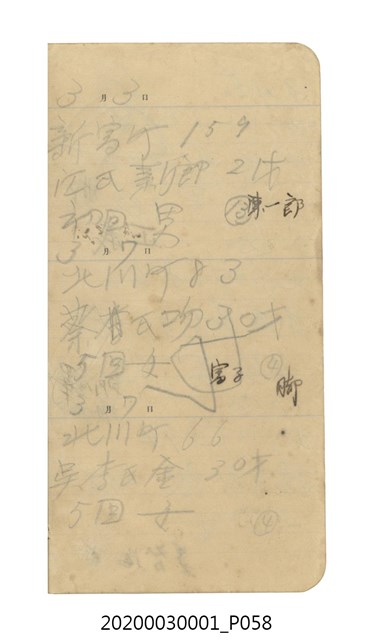 3月3日
新富町 159
氏 新御 21才
初 男
③ 陳一郎
3月7日
北川町 83
蔡 氏 30才
5回 女 ④
富子
脚
3月7日
北川町 66
吳李氏金 30才
5回 女
④
20200030001_P058